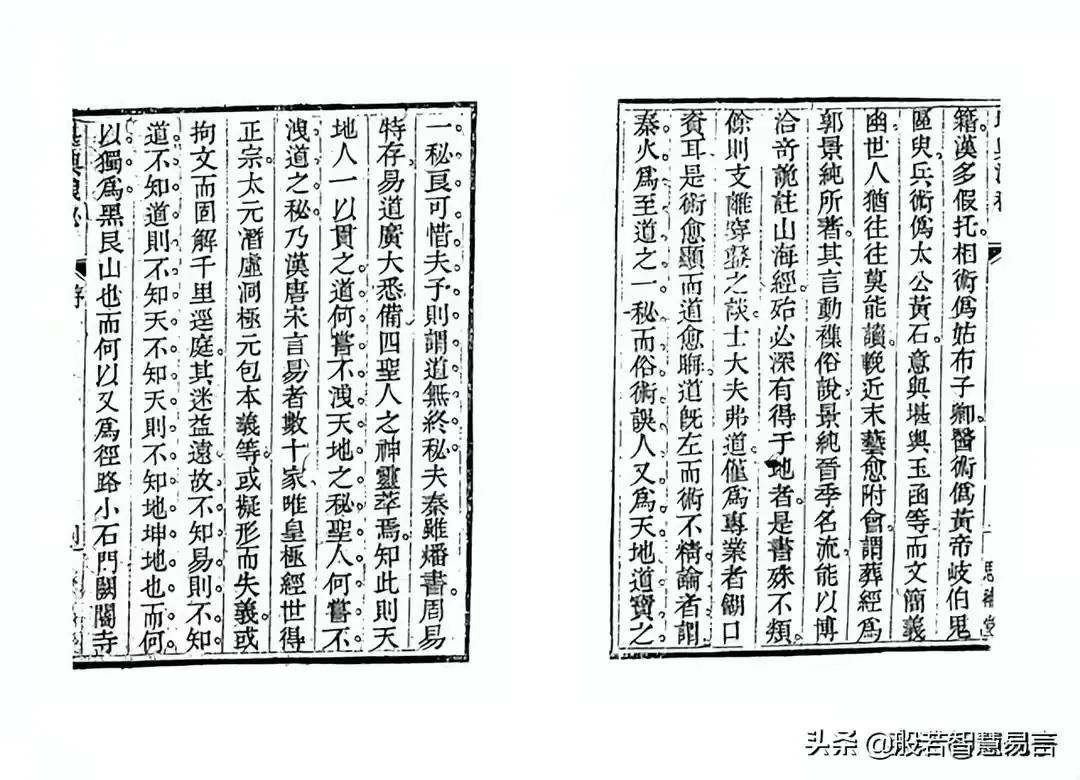 籍漢多假托相術僞姑布子卿醫術僞黃帝岐伯鬼
區臾兵術僞太公黃石意與堪輿玉函等而文簡義
幽世人猶往往莫能讀輓近末藝愈附會謂葬經爲
郭景純所著其言動襍俗說景純晉季名流能以博
洽奇詭註山海經殆必深有得于地者是書殊不類
餘則支離穿鑿之談士大夫弗道僅爲專業者餬口
資耳是術愈顯而道愈晦道旣左而術不精論者謂
秦火爲至道之一秘而俗術誤人又爲天地道寶之
一秘良可惜夫子則謂道無終秘夫秦雖燔書周易
特存易道廣大悉備四聖人之神靈萃焉知此則天
地人一以貫之道何嘗不洩天地之秘聖人何嘗不
洩道之秘乃漢唐宋言易者數十家唯皇極經世得
正宗太元潛虛洞極元包本義等或擬形而失義或
拘文而固解千里逕庭其迷益遠故不知易則不知
道不知道則不知天不知天則不知地坤地也而何
以獨爲黑艮山也而何以又爲徑路小石門闕閽寺
序
头条 @般若智慧易言